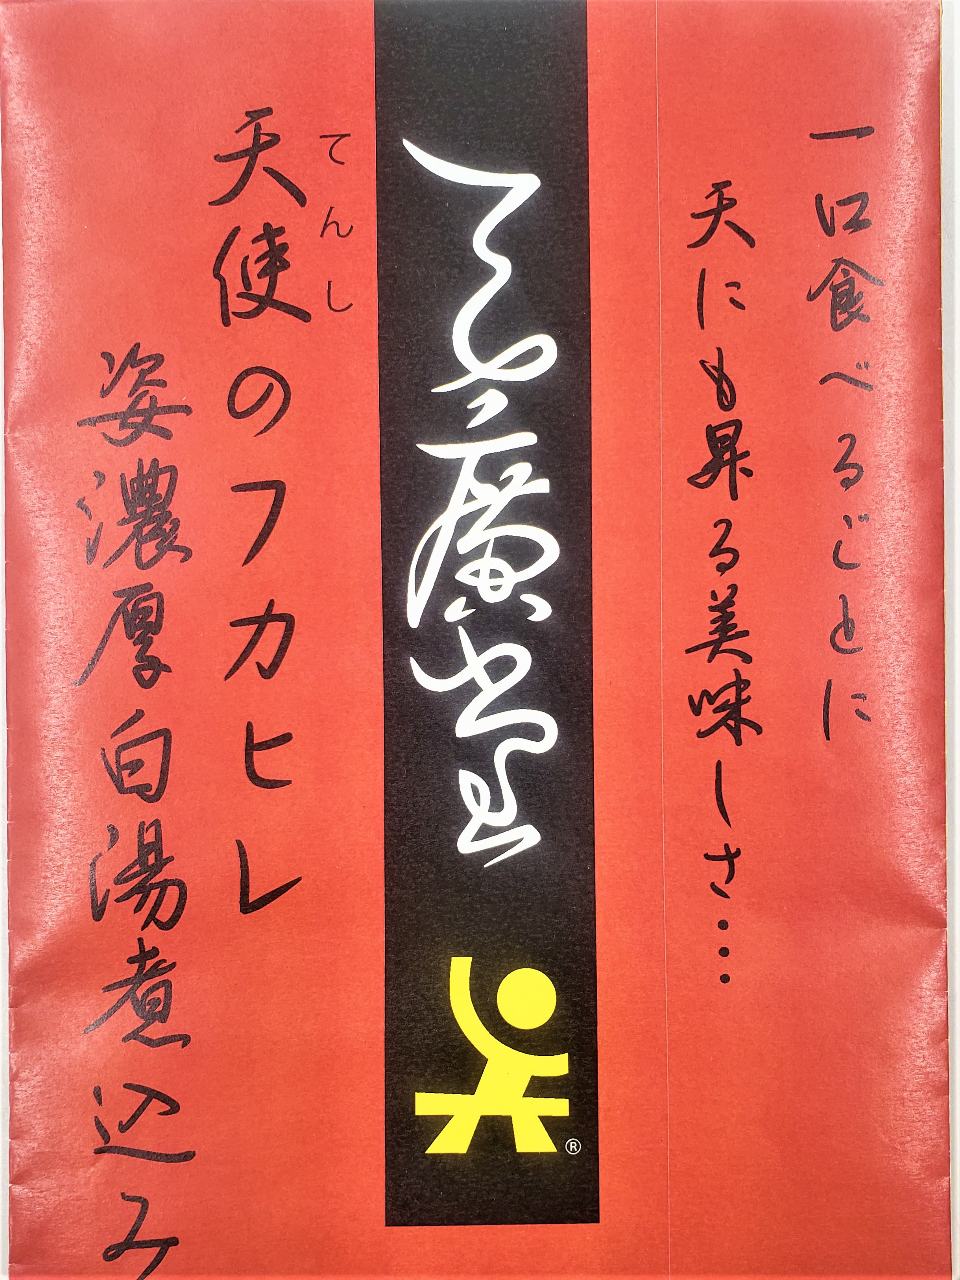 一口食べるごとに
天にも昇る美味しさ…
天廣堂
®
てんし
天使のフカヒレ
姿濃厚白湯煮込み